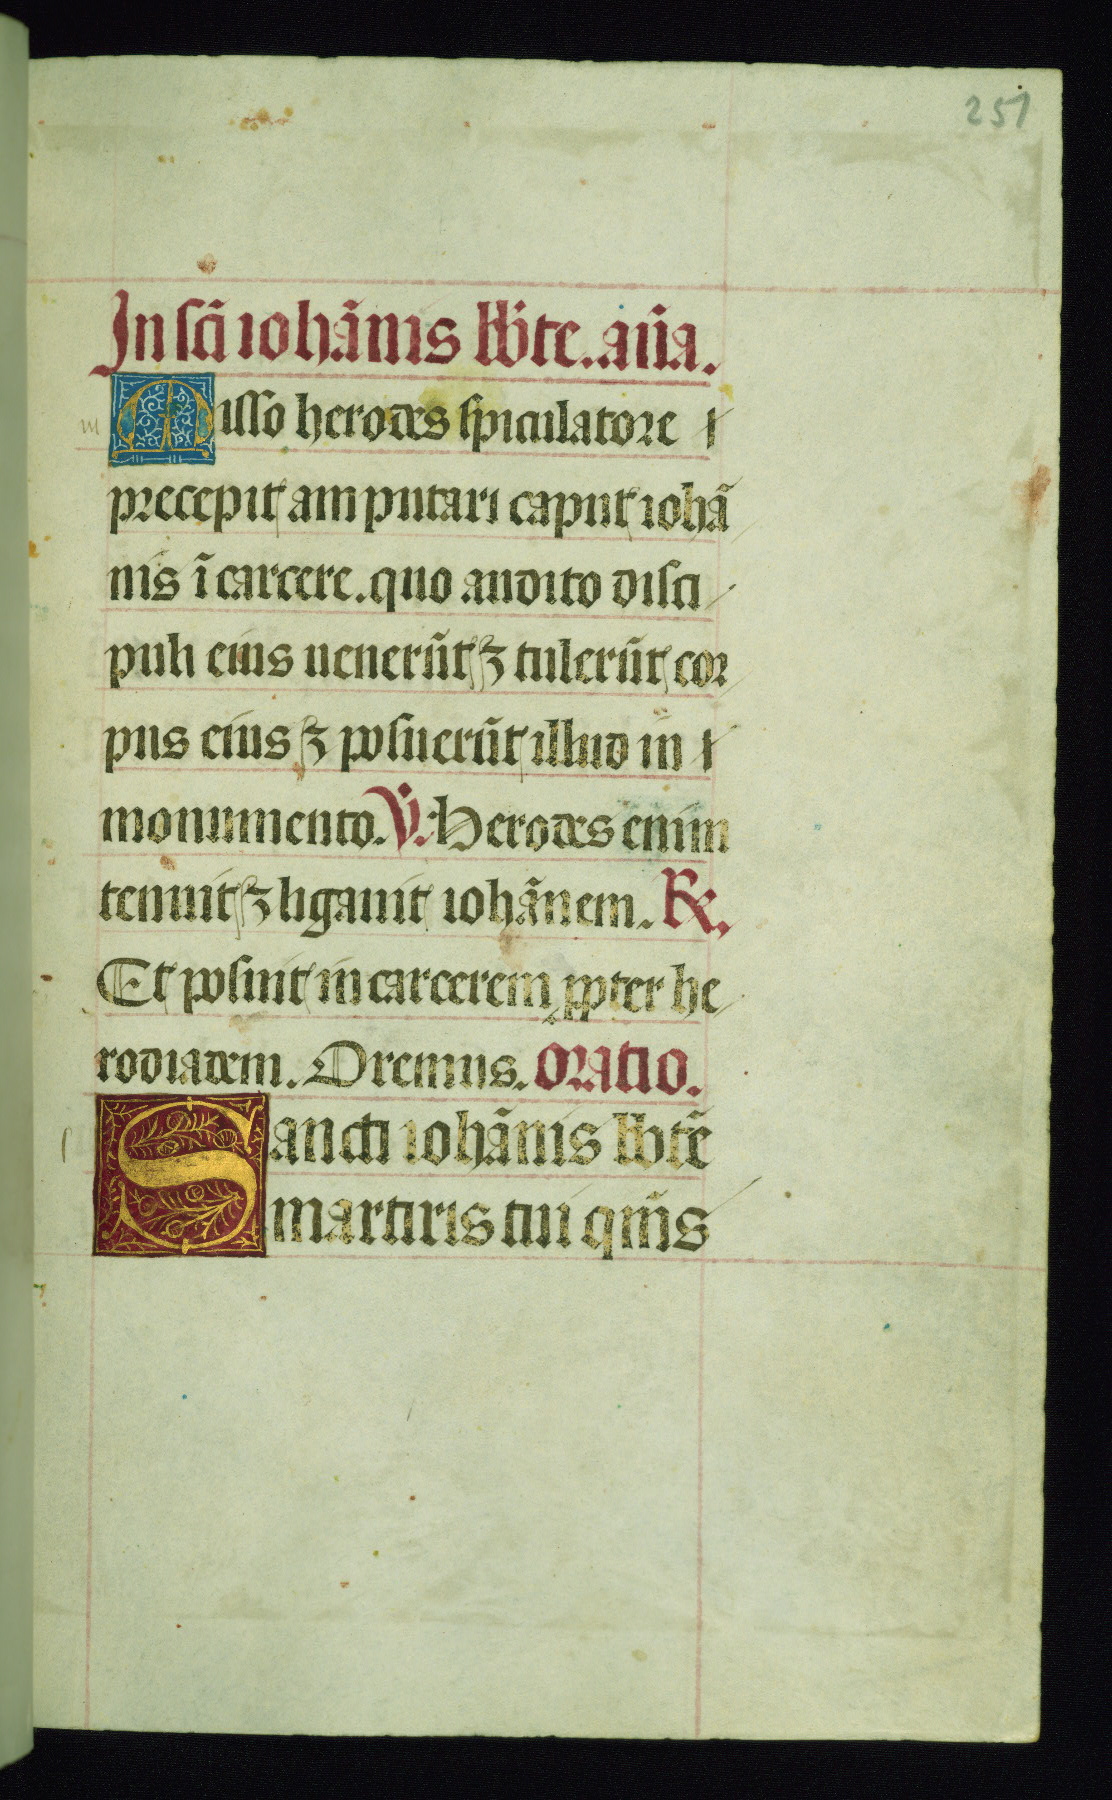 251
In sc̃i iohãnis bb̃te. aña.
Misso herodes spiculatore
precepit amputari caput iohã
nis ĩ carcere. quo audito disci
puli eius uenerũt ⁊ tulerũt cor
pus eius ⁊ posuerũt illud in
monumento. ℣. Herodes enim
tenuit ⁊ ligauit iohãnem. ℟.
Et posuit in carcerem ꝓpter he
rodiadem. Oremus. Oratio.
Sancti iohãnis bb̃tẽ
martiris tui qm̃s